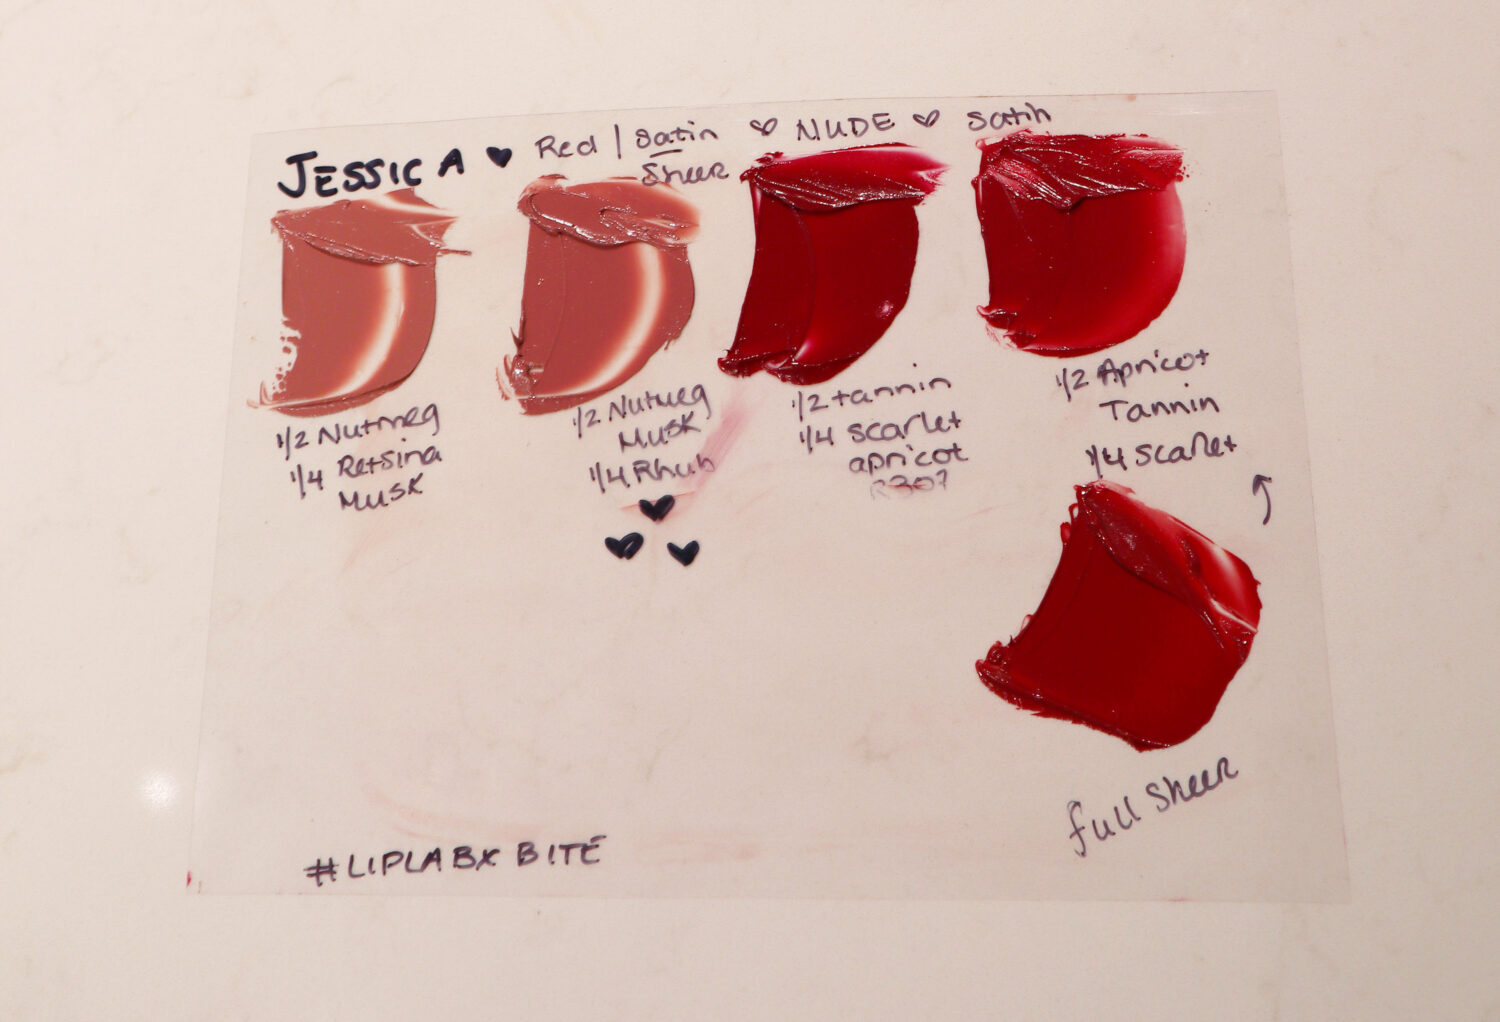 JESSICA ♥ Red | Satin ♡ NUDE ♡ Satin
Sheer
1/2 Nutmeg
1/4 Retsina
Musk
1/2 Nutmeg
Musk
1/4 Rhub
1/2 tannin
1/4 scarlet
apricot
1/2 Apricot
Tannin
1/4 Scarlet
full Sheer
#LIPLABX BITE